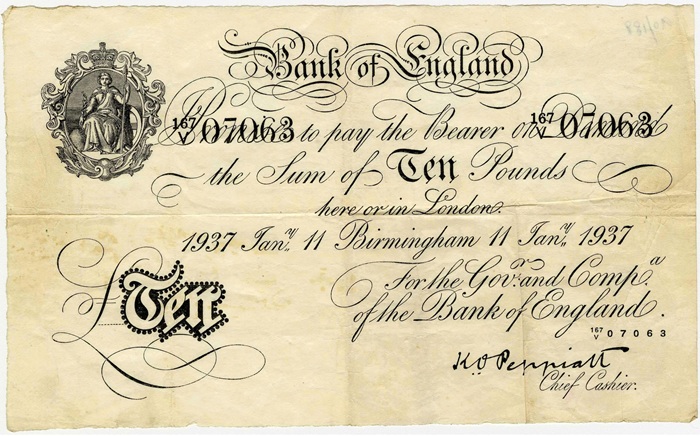 Bank of England
167/V 07063 167/V 07063
Promise to pay the Bearer on Demand
the Sum of Ten Pounds
here or in London.
1937 Jany. 11 Birmingham 11 Jany. 1937
For the Govr. and Compa.
of the Bank of England.
167/V 07063
£Ten
K O Peppiatt
Chief Cashier.